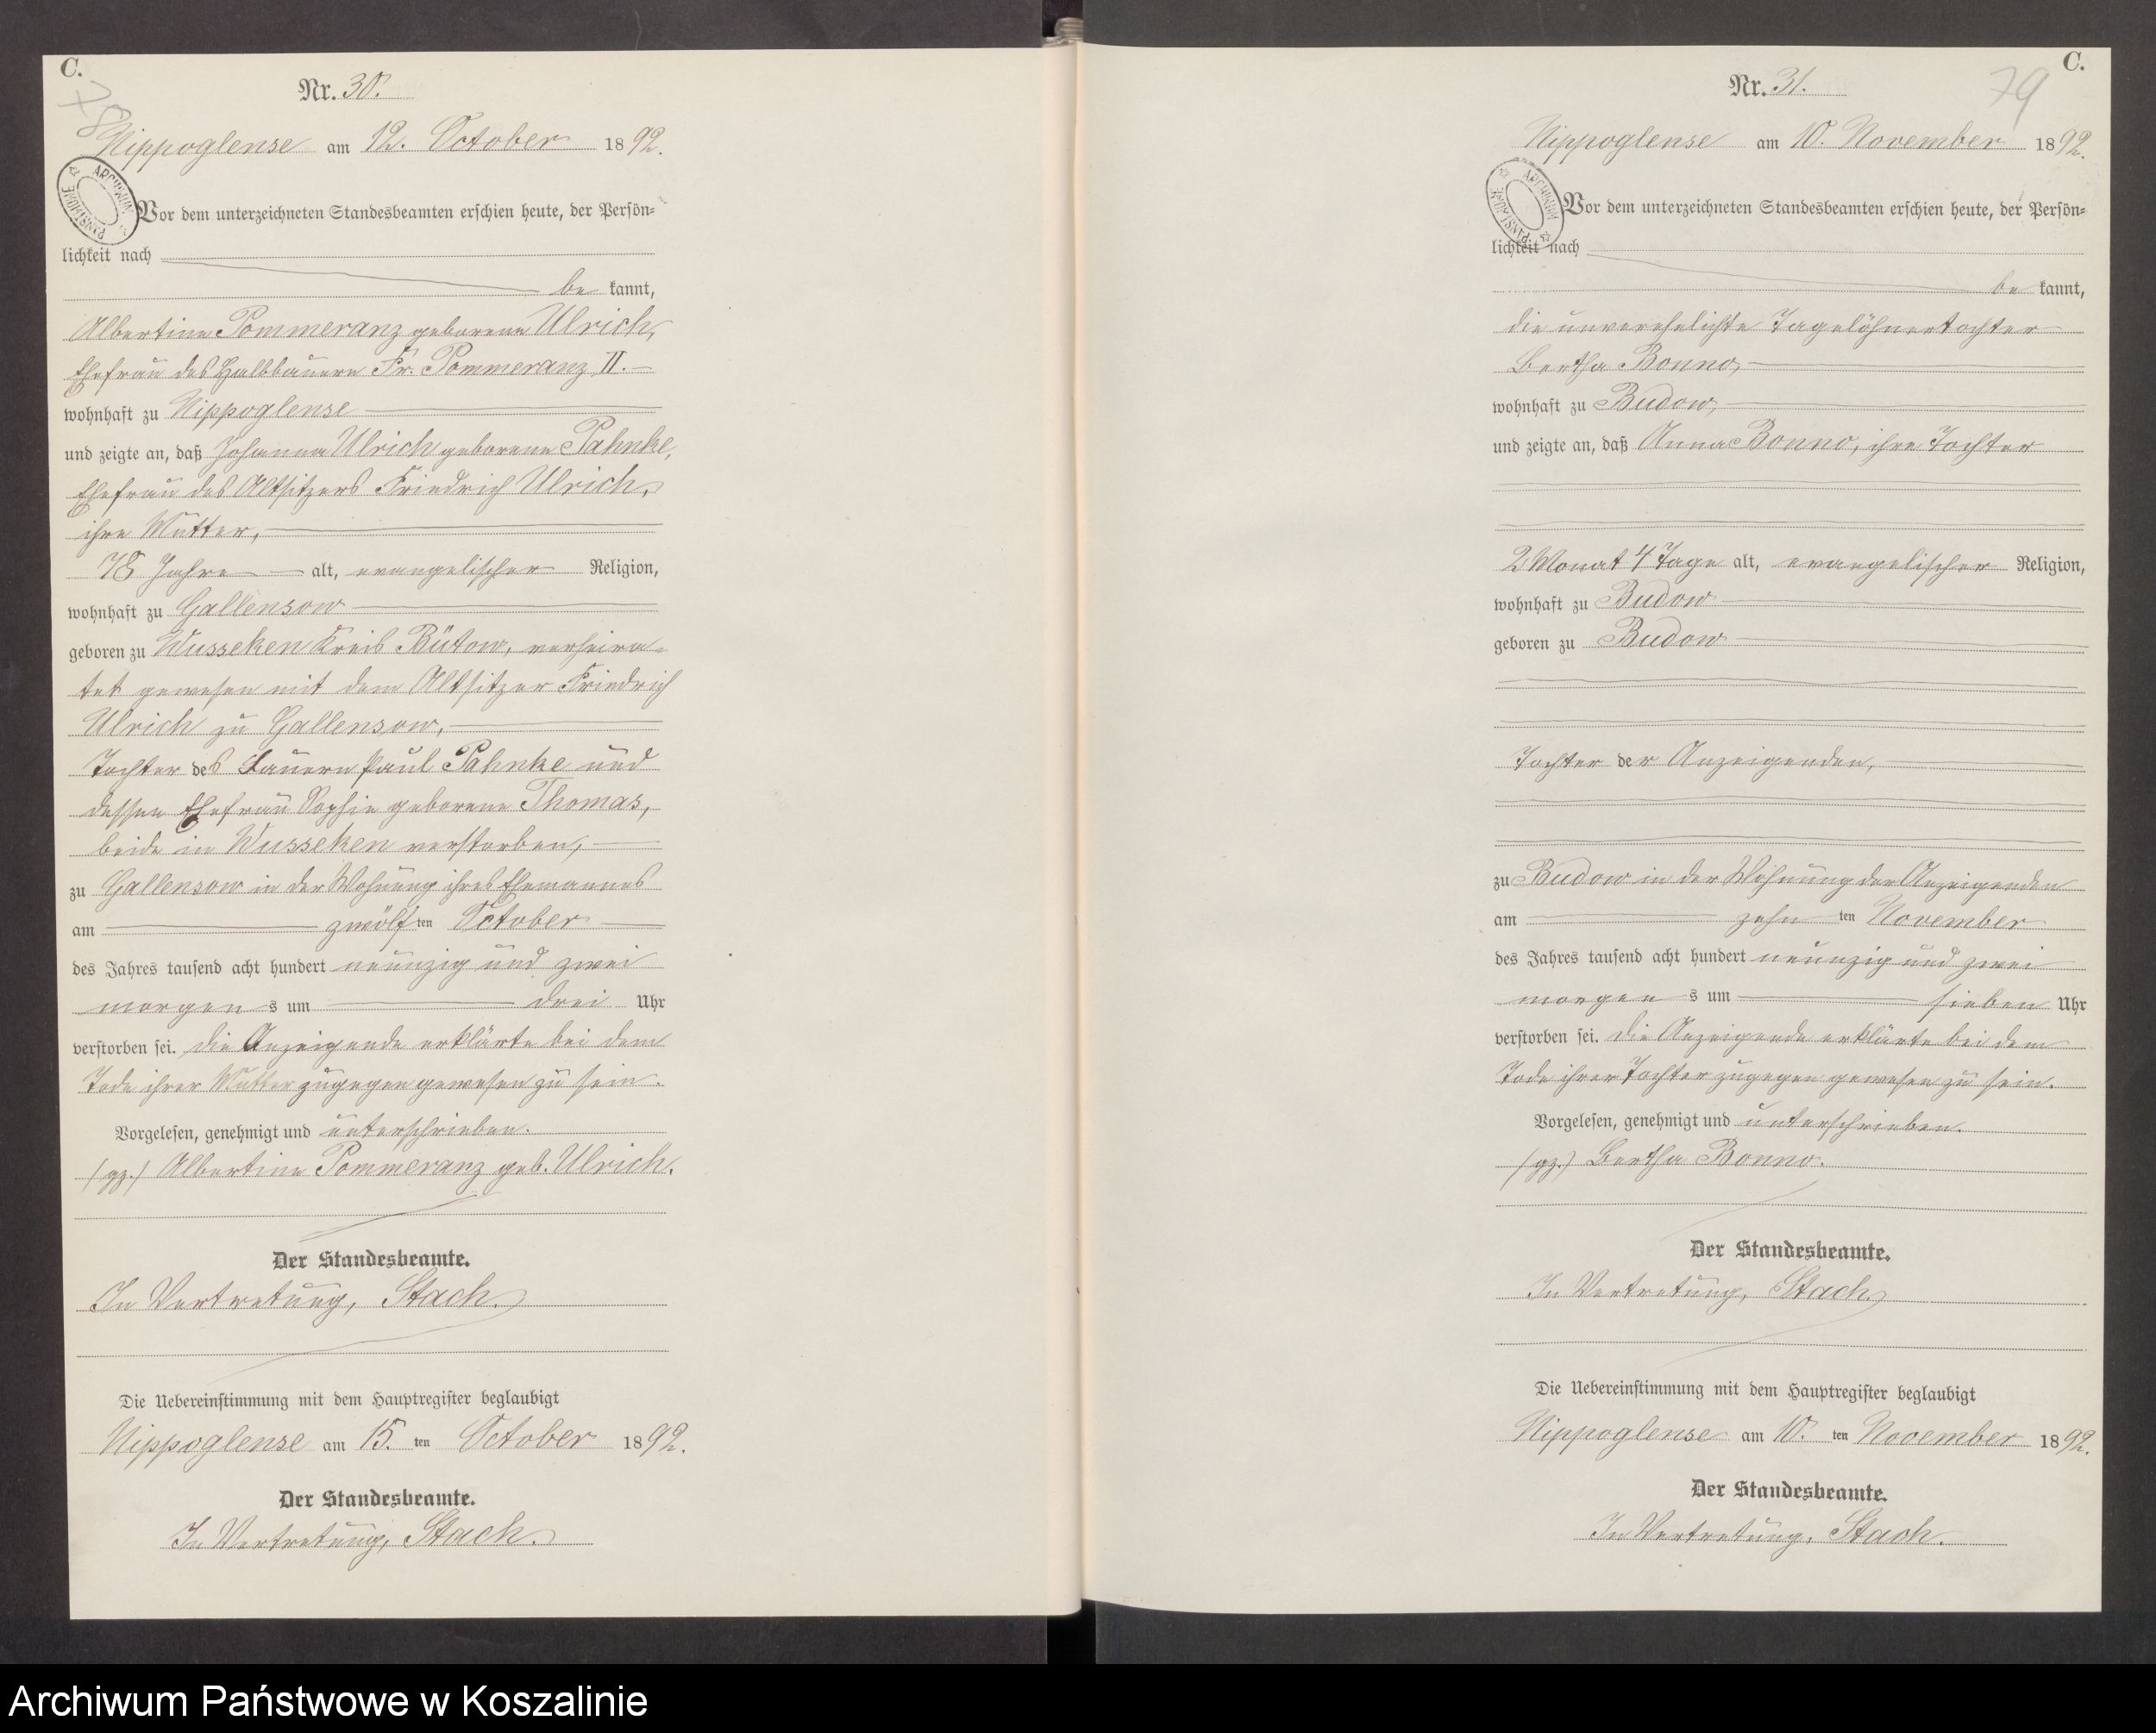 C.
78
Nr. 30.
Nippoglense am 12. October 1892.
ARCHIWUM PAŃSTWOWE
Vor dem unterzeichneten Standesbeamten erschien heute, der Persön=
lichkeit nach
be kannt,
Albertine Pommeranz geborene Ulrich,
Ehefrau des Halbbauern Fr. Pommeranz II.
wohnhaft zu Nippoglense
und zeigte an, daß Johanna Ulrich geborene Pahnke,
Ehefrau des Altsitzers Friedrich Ulrich,
ihre Mutter,
78 Jahre alt, evangelischer Religion,
wohnhaft zu Gallensow
geboren zu Wusseken Kreis Bütow, verheira-
tet gewesen mit dem Altsitzer Friedrich
Ulrich zu Gallensow,
Tochter des Bauern Paul Pahnke und
dessen Ehefrau Sophie geborene Thomas,
beide in Wusseken verstorben,
zu Gallensow in der Wohnung ihres Ehemannes
am zwölf ten October
des Jahres tausend acht hundert neunzig und zwei
morgen s um drei Uhr
verstorben sei. Die Anzeigende erklärte bei dem
Tode ihrer Mutter zugegen gewesen zu sein.
Vorgelesen, genehmigt und unterschrieben.
(gz.) Albertine Pommeranz geb. Ulrich.
Der Standesbeamte.
In Vertretung, Stach.
Die Uebereinstimmung mit dem Hauptregister beglaubigt
Nippoglense am 15. ten October 1892.
Der Standesbeamte.
In Vertretung, Stach.
C.
79
Nr. 31.
Nippoglense am 10. November 1892.
ARCHIWUM PAŃSTWOWE
Vor dem unterzeichneten Standesbeamten erschien heute, der Persön=
lichkeit nach
be kannt,
die unverehelichte Tagelöhnertochter
Bertha Bonno,
wohnhaft zu Budow,
und zeigte an, daß Anna Bonno, ihre Tochter
2 Monat 4 Tage alt, evangelischer Religion,
wohnhaft zu Budow
geboren zu Budow
Tochter der Anzeigenden,
zu Budow in der Wohnung der Anzeigenden
am zehn ten November
des Jahres tausend acht hundert neunzig und zwei
morgen s um sieben Uhr
verstorben sei. Die Anzeigende erklärte bei dem
Tode ihrer Tochter zugegen gewesen zu sein.
Vorgelesen, genehmigt und unterschrieben.
(gz.) Bertha Bonno.
Der Standesbeamte.
In Vertretung, Stach
Die Uebereinstimmung mit dem Hauptregister beglaubigt
Nippoglense am 10. ten November 1892.
Der Standesbeamte.
In Vertretung, Stach.
Archiwum Państwowe w Koszalinie